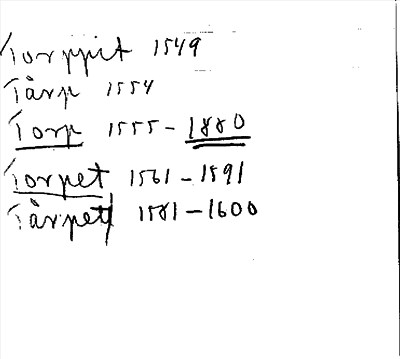 Torppit 1549
Tårp 1554
Torp 1555-1880
Torpet 1561-1591
Tårpet 1581-1600